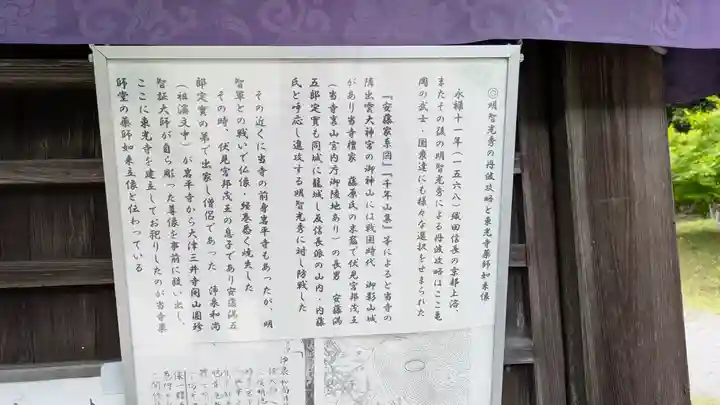 ◎明智光秀の丹波攻略と東光寺薬師如来像
永禄十一年(一五六八)織田信長の京都上洛、
またその後の明智光秀による丹波攻略はここ亀
岡の武士・国衆達にも様々な選択をせまられた
『安藤家系図』『千年山集』等によると当寺の
隣出雲大神宮の御神山には戦国時代 御影山城
があり当寺檀家 藤原氏の末裔で伏見宮邦茂王
(当寺裏山宮内庁御陵地あり)の長男 安藤満
五郎定實も同城に籠城し反信長派の山内・内藤
氏と呼応し進攻する明智光秀に対し防戦した
その近くに当寺の前身岩平寺もあったが、明
智軍との戦いで仏像・経巻悉く焼失した
その時、伏見宮邦茂王の息子であり安藤満五
郎定實の弟で出家し僧侶であった 沛泉和尚
(祖濱文中)が岩平寺から大津三井寺開山圓珍
智証大師が自ら彫った尊像を事前に救い出し、
ここに東光寺を建立してお祀りしたのが当寺薬
師堂の薬師如来立像と伝わっている